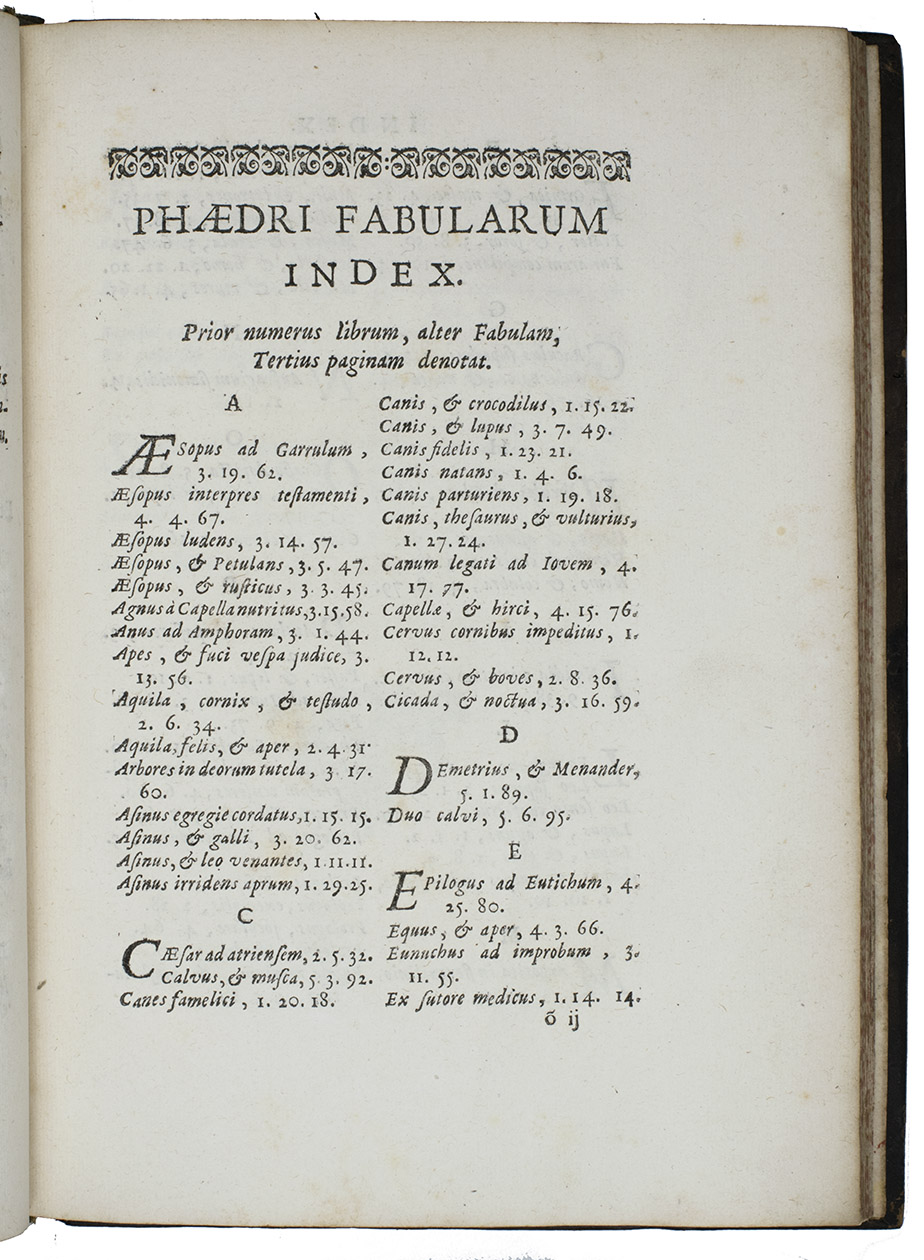 PHÆDRI FABULARUM
INDEX.
Prior numerus librum, alter Fabulam,
Tertius paginam denotat.
A
ÆSopus ad Garrulum,
3. 19. 62.
Æſopus interpres teſtamenti,
4. 4. 67.
Æſopus ludens, 3. 14. 57.
Æſopus, & Petulans, 3. 5. 47.
Æſopus, & ruſticus, 3. 3. 45.
Agnus à Capella nutritus, 3. 15. 58.
Anus ad Amphoram, 3. 1. 44.
Apes, & fuci veſpa judice, 3.
13. 56.
Aquila, cornix, & teſtudo,
2. 6. 34.
Aquila, felis, & aper, 2. 4. 31.
Arbores in deorum tutela, 3. 17.
60.
Aſinus egregie cordatus, 1. 15. 15.
Aſinus, & galli, 3. 20. 62.
Aſinus, & leo venantes, 1. 11. 11.
Aſinus irridens aprum, 1. 29. 25.
C
CÆſar ad atrienſem, 2. 5. 32.
Calvus, & muſca, 5. 3. 92.
Canes famelici, 1. 20. 18.
Canis, & crocodilus, 1. 15. 22.
Canis, & lupus, 3. 7. 49.
Canis fidelis, 1. 23. 21.
Canis natans, 1. 4. 6.
Canis parturiens, 1. 19. 18.
Canis, theſaurus, & vulturius,
1. 27. 24.
Canum legati ad Iovem, 4.
17. 77.
Capellæ, & hirci, 4. 15. 76.
Cervus cornibus impeditus, 1.
12. 12.
Cervus, & boves, 2. 8. 36.
Cicada, & noctua, 3. 16. 59.
D
DEmetrius, & Menander,
5. 1. 89.
Duo calvi, 5. 6. 95.
E
EPilogus ad Eutichum, 4.
25. 80.
Equus, & aper, 4. 3. 66.
Eunuchus ad improbum, 3.
11. 55.
Ex ſutore medicus, 1. 14. 14.
õ ij